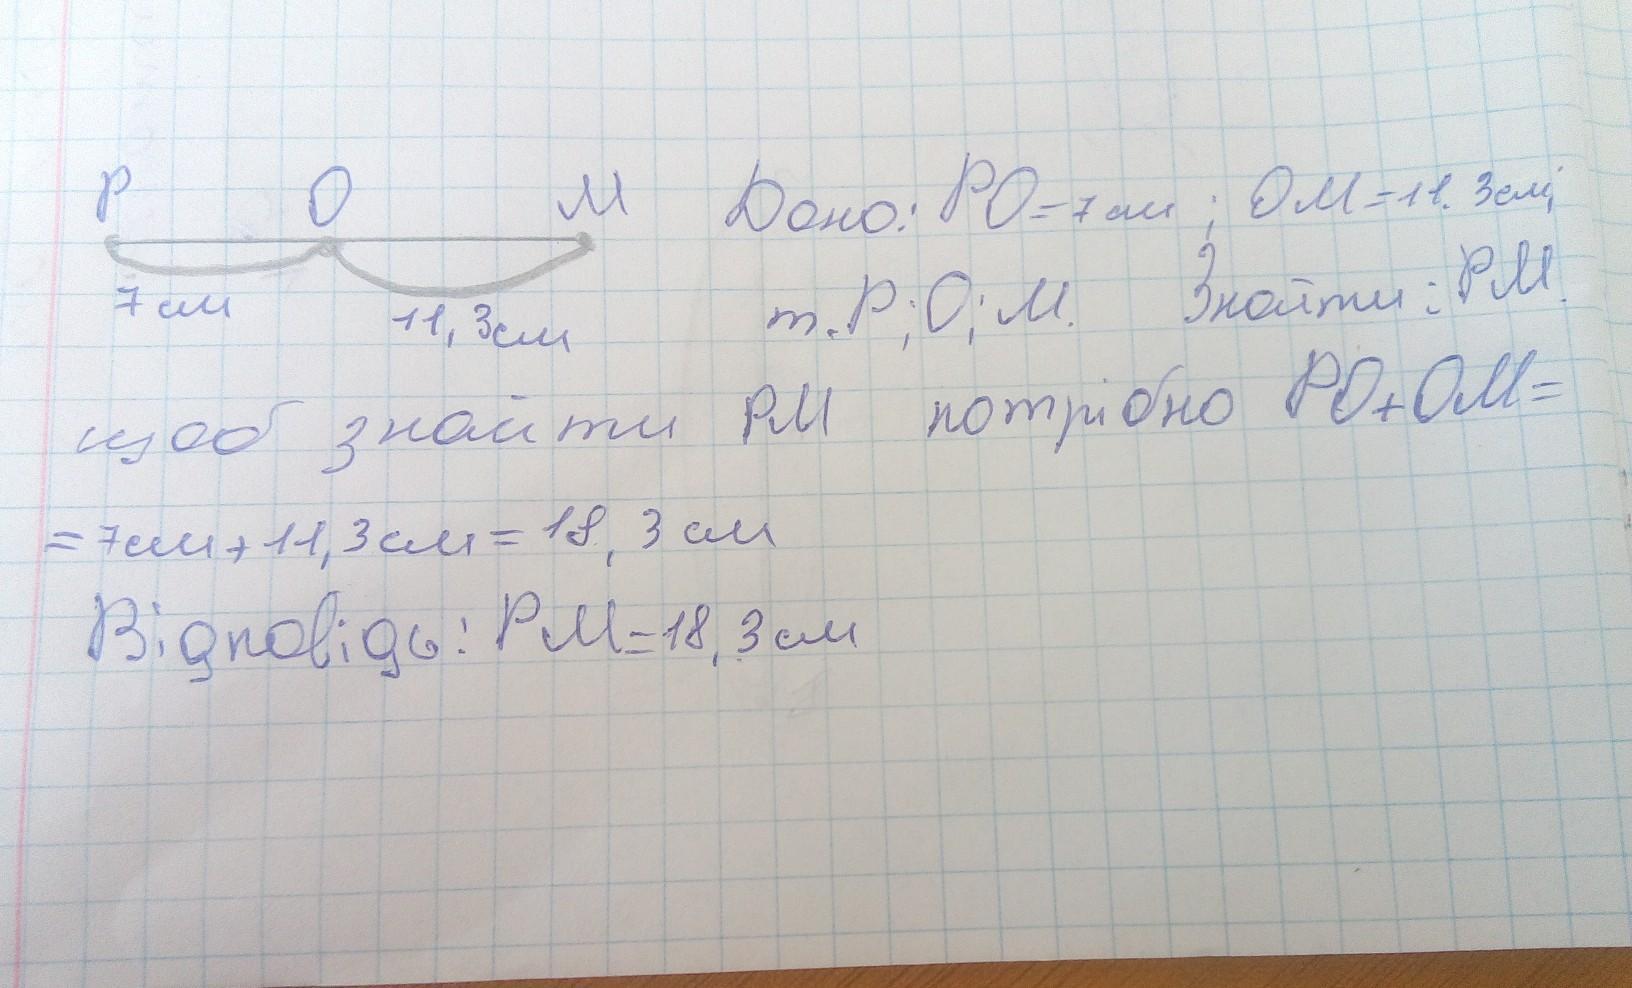 P O M
7 см
11,3см
Дано: PO=7см; OM=11.3см;
т.P;O;M. Знайти: PM.
щоб знайти PM потрібно PO+OM=
=7см+11,3см=18,3см
Відповідь: PM=18,3см